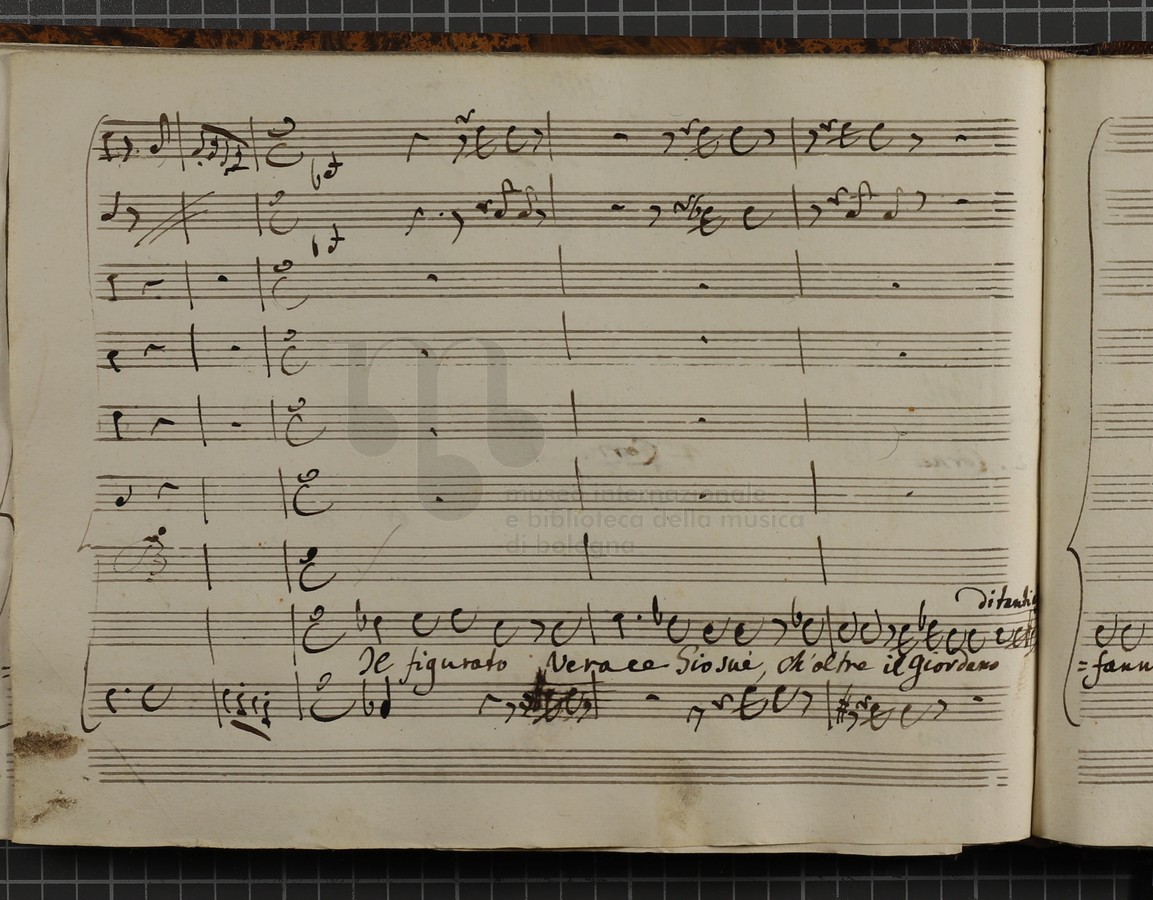 museo internazionale
e biblioteca della musica
di bologna
di tanti
Il figurato Verace Giosuè, ch'oltre il Giordano
= fann